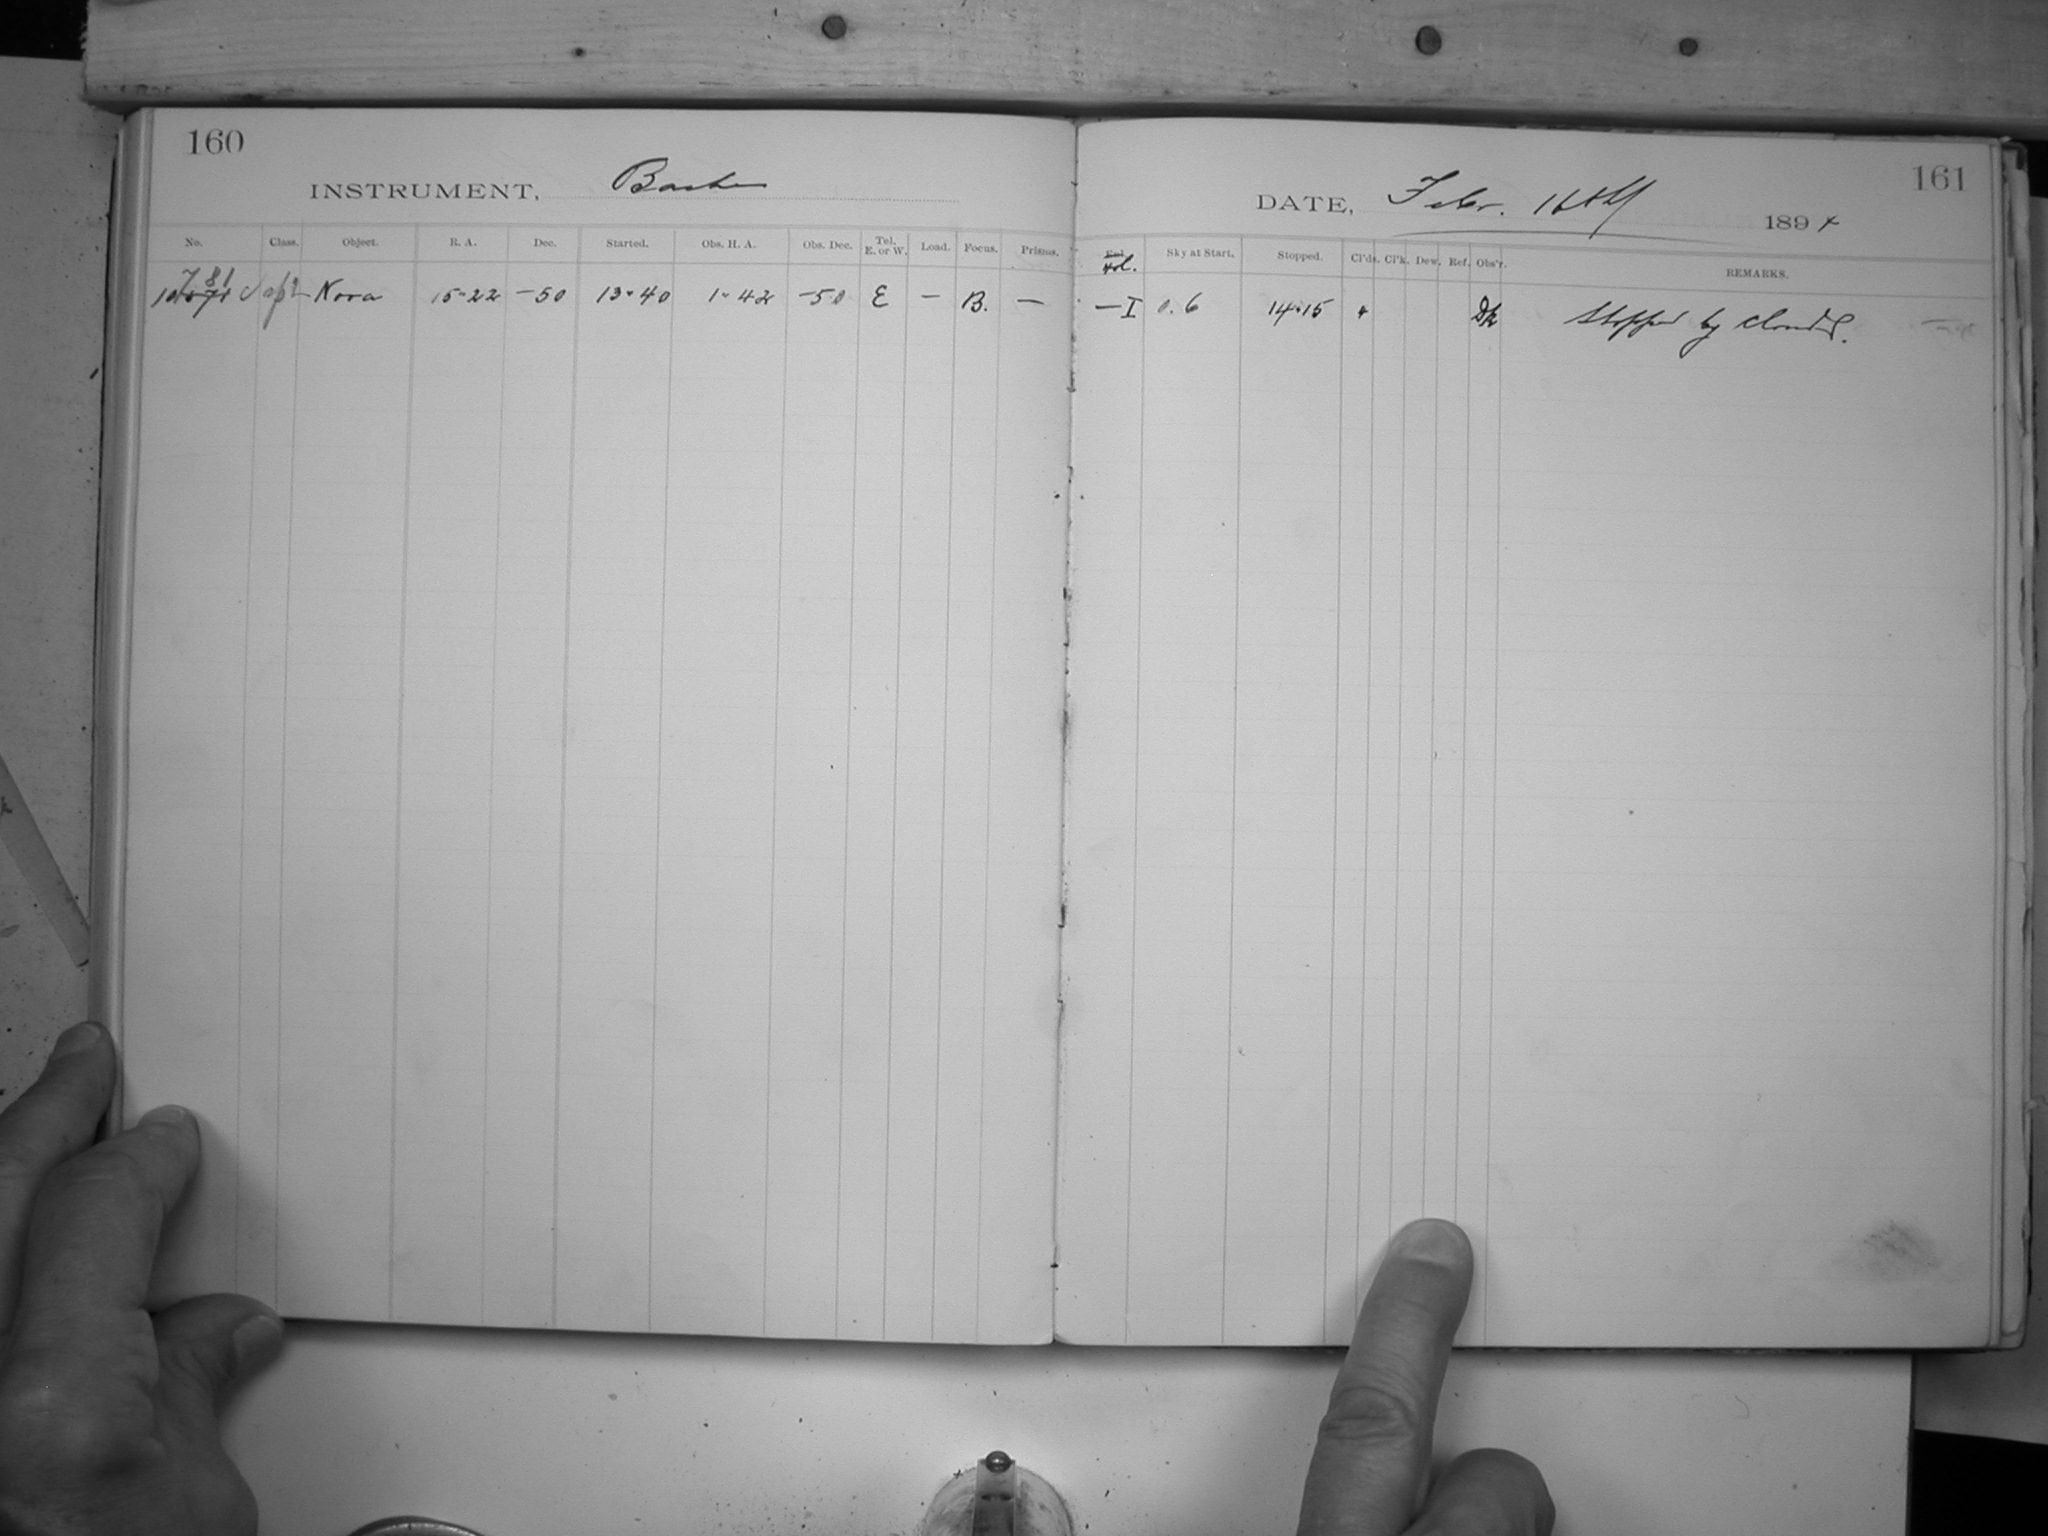 160
INSTRUMENT, Bache
No. Class. Object. R. A. Dec. Started. Obs. H. A. Obs. Dec. Tel. E. or W. Load. Focus. Prisms.
Nova 15-22 -50 13-40 1-42 -50 E - B. -
161
DATE, Febr. 16th 1894
Sky at Start. Stopped. Cl'ds. Cl'k. Dew. Ref. Obs'r. REMARKS.
-I 0.6 14-15 Stopped by clouds.